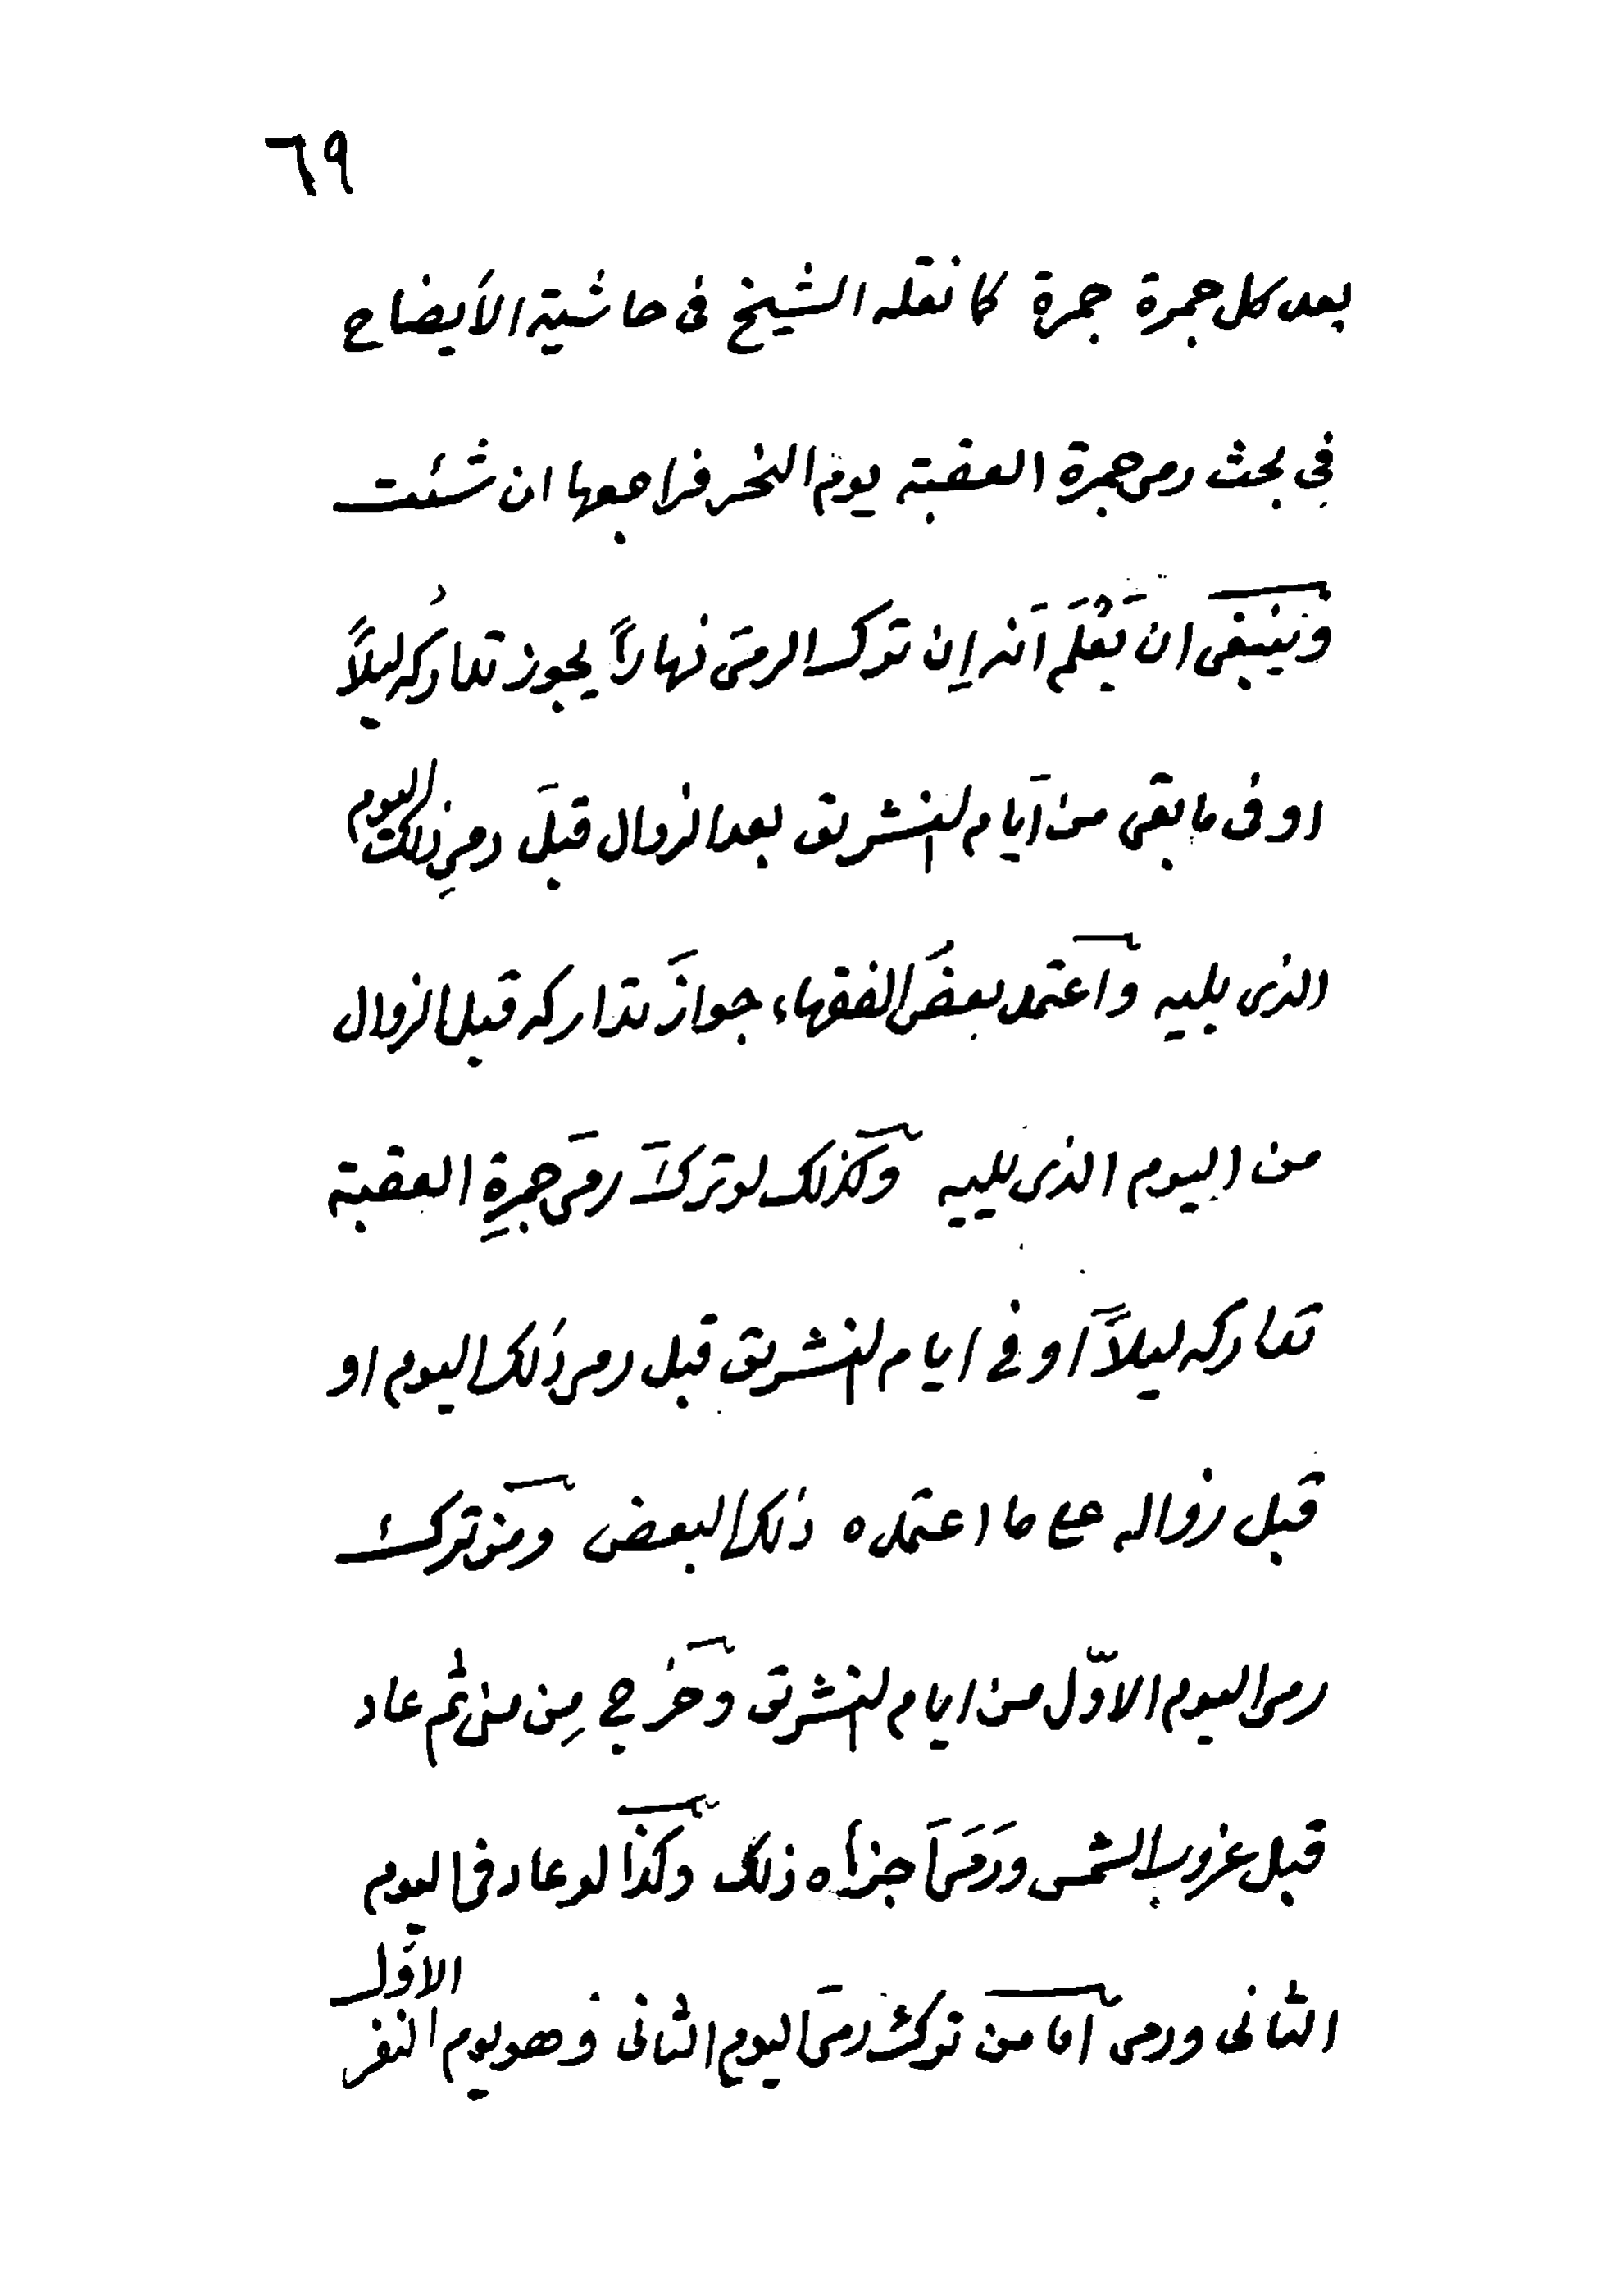 ٦٩
بعد كل جمرة جمرة كما نقله الشيخ فى حاشية الأيضاح
فى بحث رمى جمرة العقبة يوم النحر فراجعها ان شئت
وَيَنبغى ان يُعْلَم اَنه إن ترك الرمىَ نهاراً يجوز تداركُه ليلاً
او فى ما بقى من اَيام التشريق بعد الزوال قبلَ رمىِ ذلك اليوم
الذى يليه واَعتمد بعضُ الفقهاء جوازَ تداركه قبل الزوال
من اليوم الذى يليه وكَذلك لو تركَ رمىَ جمرةِ العقبة
تداركه ليلاً او فى ايام التشريق قبل رمى ذلك اليوم او
قبل زواله على ما اعتمده ذلك البعض ومن ترك
رمى اليوم الاوّل من ايام التشريق وخَرج مِن منى ثم عاد
قبل غروب الشمس ورَمَى اَجزأه ذلك وكذا لو عاد فى اليوم
الثانى ورمى اَما من ترك رمىَ اليوم الثانى وهو يوم النفر الاوّل